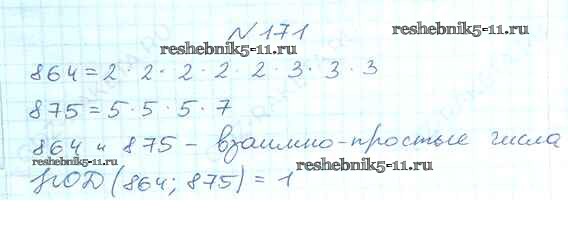 №171
reshebnik5-11.ru
864=2·2·2·2·2·3·3·3
reshebnik5-11.ru
875=5·5·5·7
864 и 875 - взаимно-простые числа
reshebnik5-11.ru
reshebnik5-11.ru
НОД(864; 875) = 1